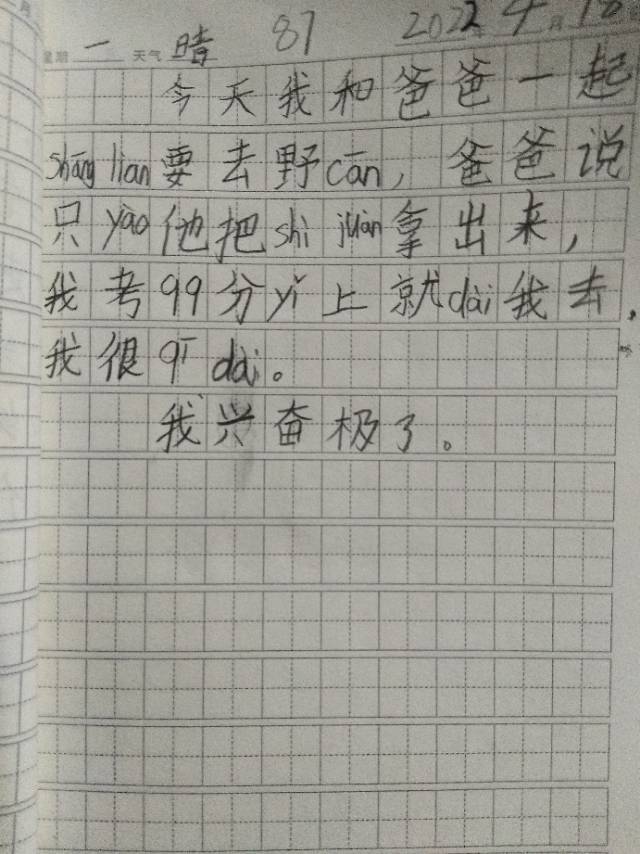 2022年 4月 18
星期 一 天气 晴 87
今天我和爸爸一起
shāng liàn要去野cān，爸爸说
只yào他把shì juàn拿出来，
我考99分yǐ上就dài我去，
我很qī dài。
我兴奋极了。